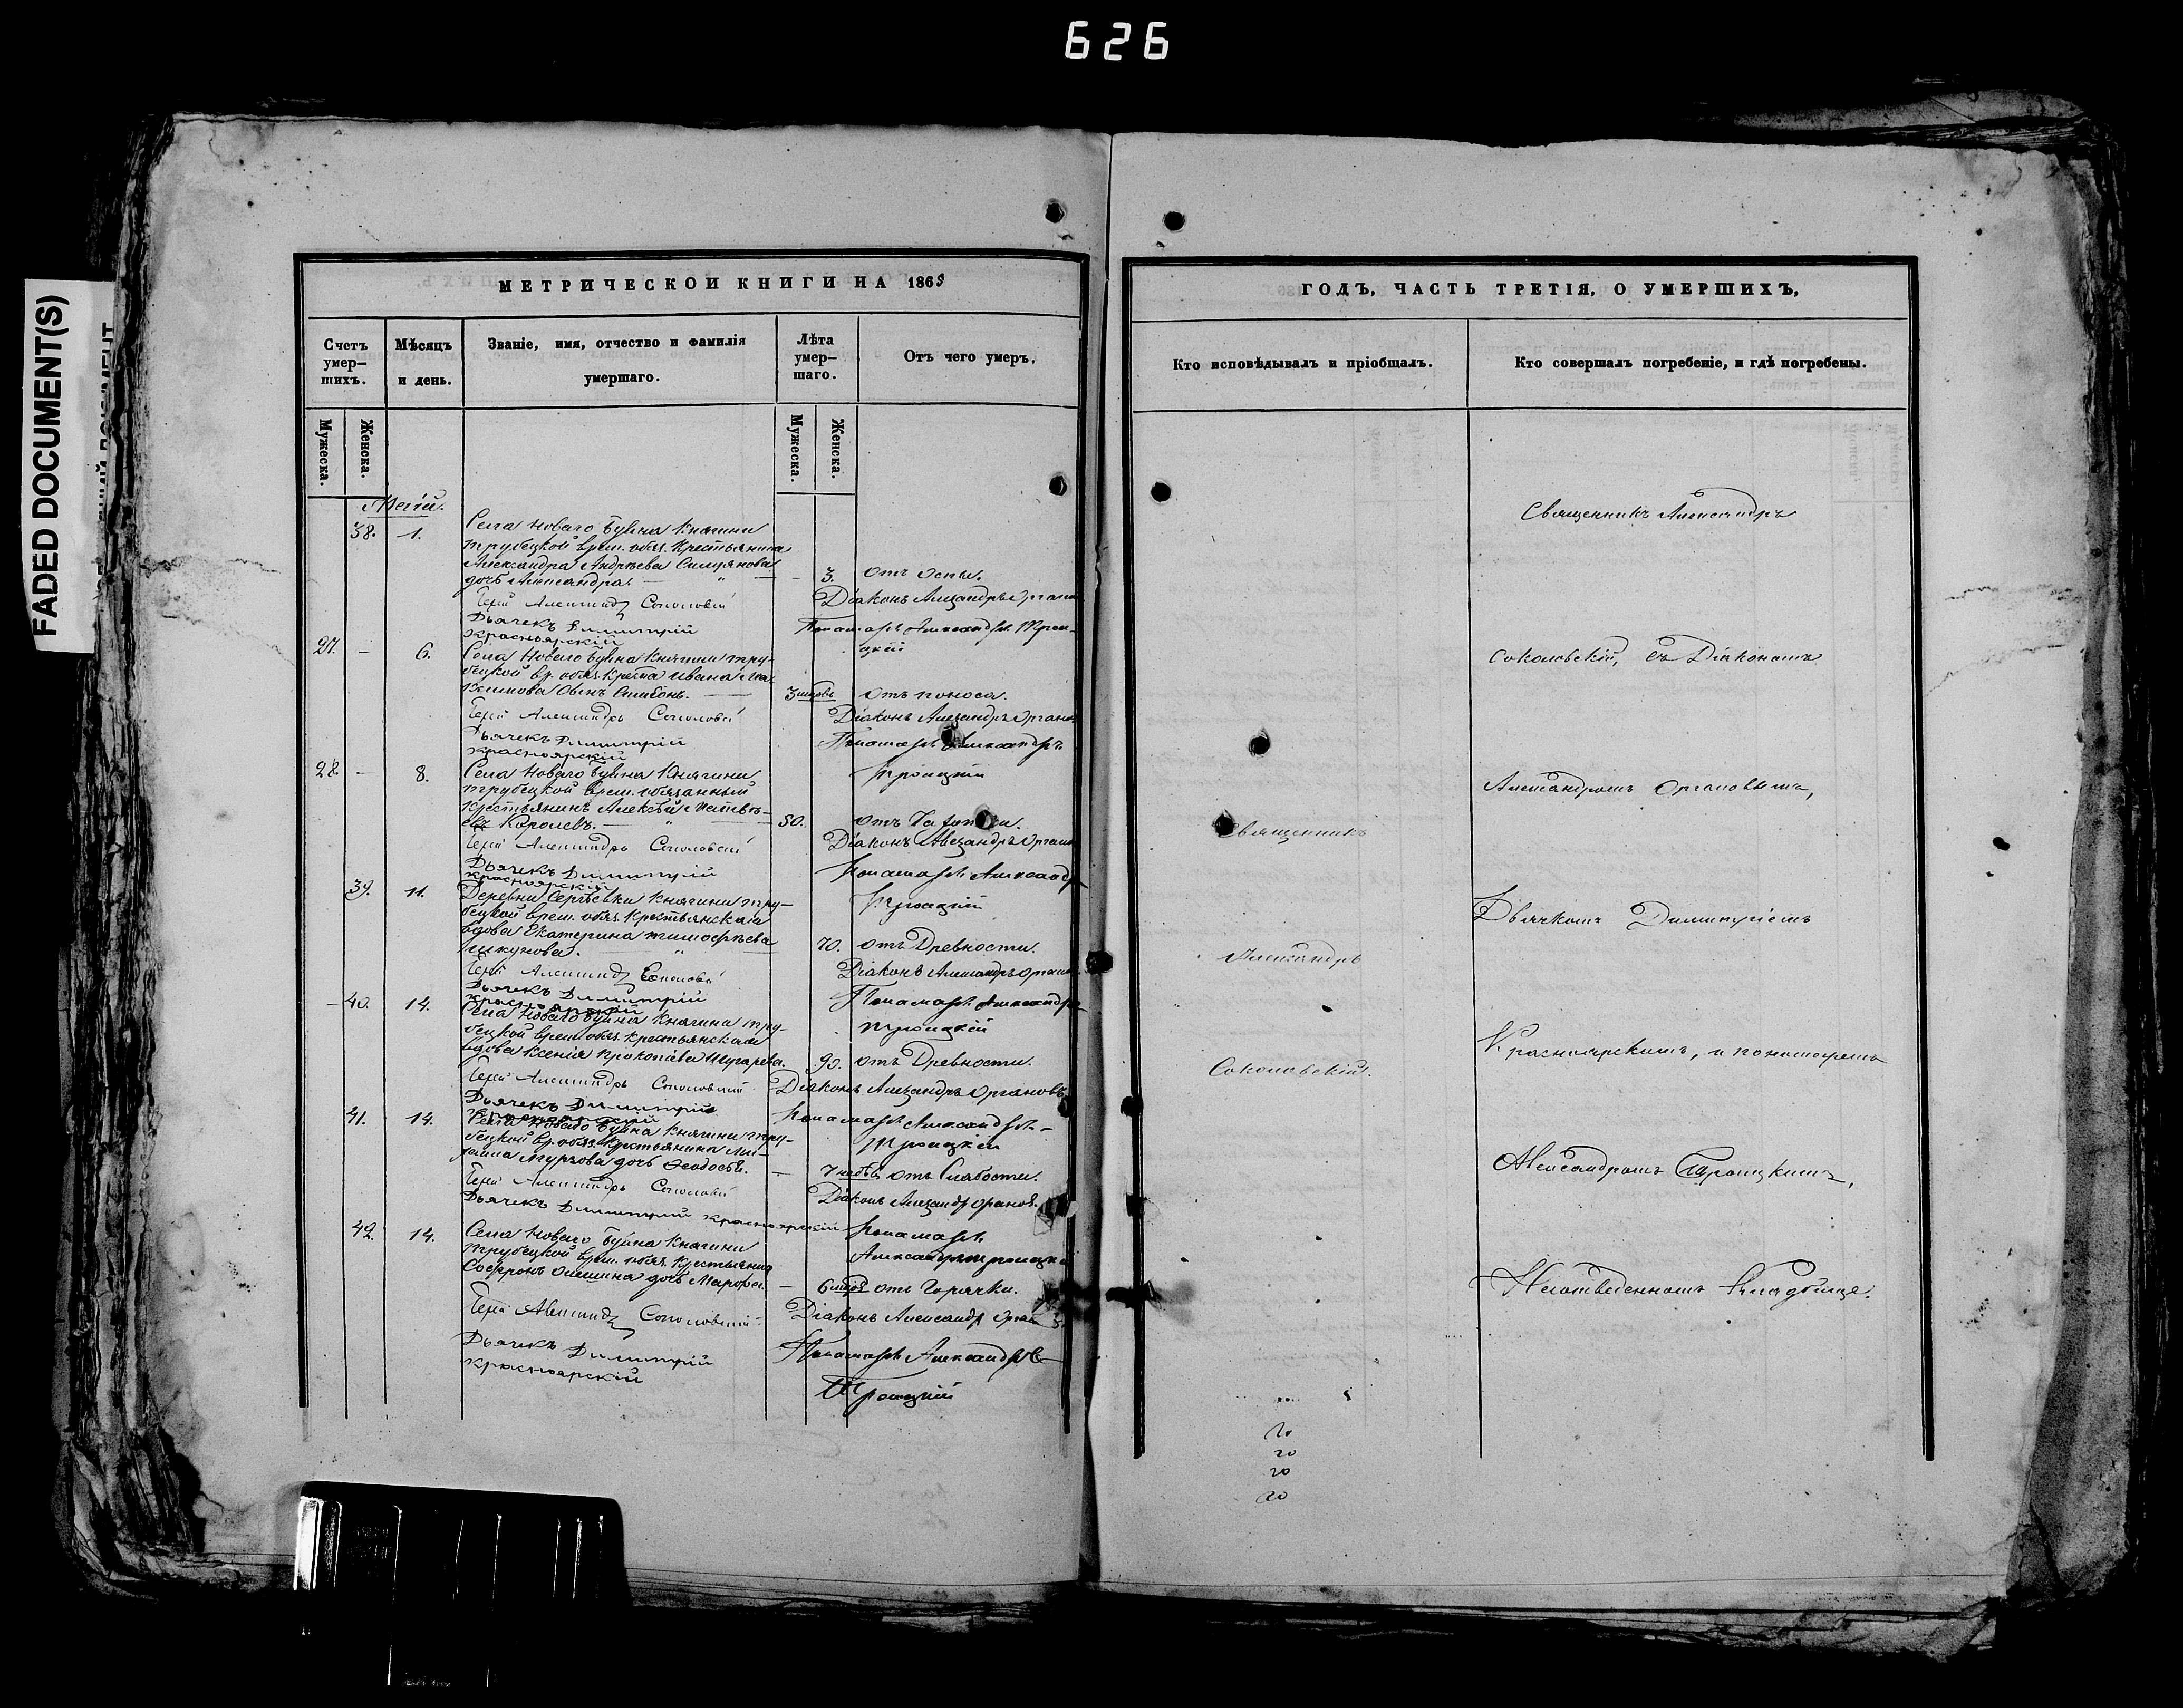 626
FADED DOCUMENT(S)
МЕТРИЧЕСКОЙ КНИГИ НА 1865
Счетъ умер-
шихъ.
Мѣсяцъ
и день.
Званіе, имя, отчество и фамилія
умершаго.
Лѣта
умер-
шаго.
Отъ чего умеръ.
Мужеска.
Женска.
Мужеска.
Женска.
38. 1.
Села Новаго Буяна Княгини
Трубецкой врем. обяз. Крестьянина
Александра Андрѣева
дочь Александра. — 3. отъ Оспы.
Діаконъ Александръ Органовъ
Дьячекъ Димитрій
Красноярскій
Пономарь Александръ Трои-
цкій
27. — 6.
Села Новаго Буяна Княгини Тру-
бецкой вр. обяз. Кре-на Ивана Ма-
ксимова Сынъ
отъ поноса.
Іерей Александръ Соколовскій
Діаконъ Александръ Органовъ
Дьячекъ Димитрій
Красноярскій
Пономарь Александръ
Троицкій
28. — 8.
Села Новаго Буяна Княгини
Трубецкой врем. обязанный
Крестьянинъ Алексѣй Матвѣ-
евъ Королевъ. — 50.
Іерей Александръ Соколовскій
Діаконъ Александръ Органовъ
Дьячекъ Димитрій
Красноярскій
Пономарь Александръ
Троицкій
39. 11.
Деревни Сергѣевки Княгини Тру-
бецкой врем. обяз. Крестьянская
вдова Екатерина Тимофѣева
70. отъ Древности.
Іерей Александръ Соколовскій
Діаконъ Александръ Органовъ
Дьячекъ Димитрій
Красноярскій
Пономарь Александръ
Троицкій
— 40. 14.
Села Новаго Буяна Княгини Тру-
бецкой врем. обяз. Крестьянская
вдова Ксенія Прокопіева 90. отъ Древности.
Іерей Александръ Соколовскій
Діаконъ Александръ Органовъ
Дьячекъ Димитрій
Красноярскій
Пономарь Александръ
Троицкій
41. 14.
Села Новаго Буяна Княгини Тру-
бецкой вр. обяз. Крестьянина Ми-
хаила дочь Феодосія. — 7 недѣл отъ Слабости.
Іерей Александръ Соколовскій
Діаконъ Александръ Органовъ
Дьячекъ Димитрій Красноярскій
Пономарь
Александръ Троицкій
42. 14.
Села Новаго Буяна Княгини
Трубецкой врем. обяз. Крестьянина
дочь Марфа. — отъ Горячки.
Іерей Александръ Соколовскій
Діаконъ Александръ
Дьячекъ Димитрій
Красноярскій
Пономарь Александръ
Троицкій
ГОДЪ, ЧАСТЬ ТРЕТІЯ, О УМЕРШИХЪ,
Кто исповѣдывалъ и пріобщалъ.
Кто совершалъ погребеніе, и гдѣ погребены.
Священникъ
Александръ
Соколовскій.
Священникъ Александръ
Соколовскій, съ Діакономъ
Александромъ Органовымъ,
Дьячкомъ Димитріемъ
Красноярскимъ, и пономаремъ
Александромъ Троицкимъ,
кладбище.
20
20
20
20